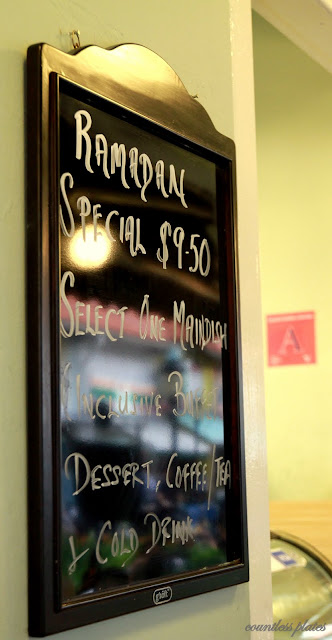 RAMADAN
SPECIAL $9-50
SELECT ONE MAINDISH
INCLUSIVE
DESSERT, COFFEE/TEA
& COLD DRINK
A
countless plates